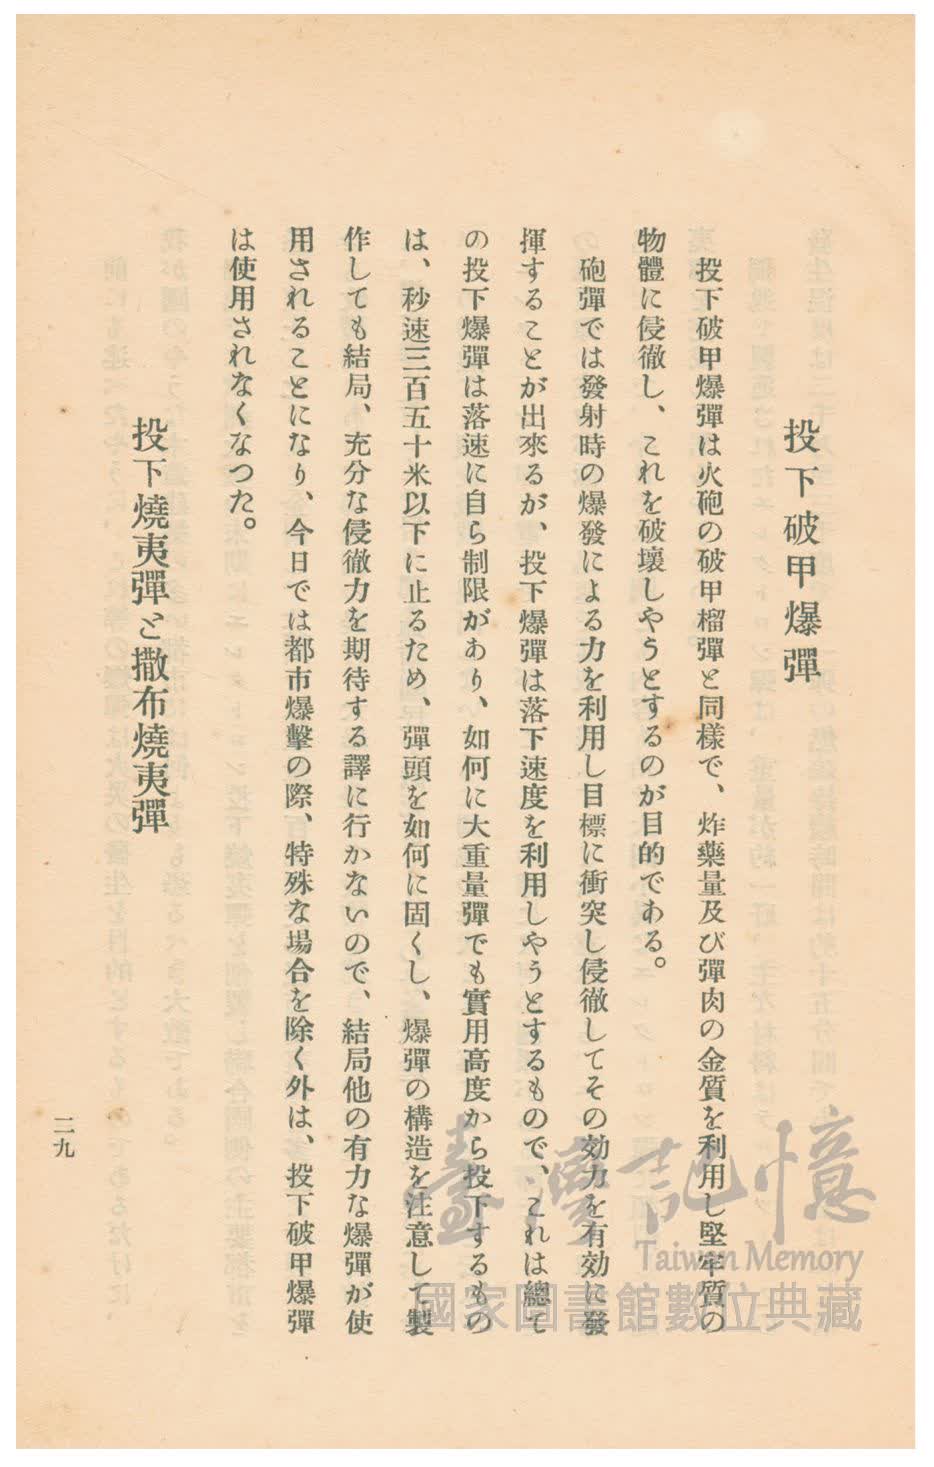 投下破甲爆彈
投下破甲爆彈は火砲の破甲榴彈と同樣で、炸藥量及び彈肉の金質を利用し堅牢質の
物體に侵徹し、これを破壞しやうとするのが目的である。
砲彈では發射時の爆發による力を利用し目標に衝突し侵徹してその効力を有効に發
揮することが出來るが、投下爆彈は落下速度を利用しやうとするもので、これは總て
の投下爆彈は落速に自ら制限があり、如何に大重量彈でも實用高度から投下するもの
は、秒速三百五十米以下に止るため、彈頭を如何に固くし、爆彈の構造を注意して製
作しても結局、充分な侵徹力を期待する譯に行かないので、結局他の有力な爆彈が使
用されることになり、今日では都市爆擊の際、特殊な場合を除く外は、投下破甲爆彈
は使用されなくなつた。
投下燒夷彈と撒布燒夷彈
二九
臺灣記憶
Taiwan Memory
國家圖書館數位典藏